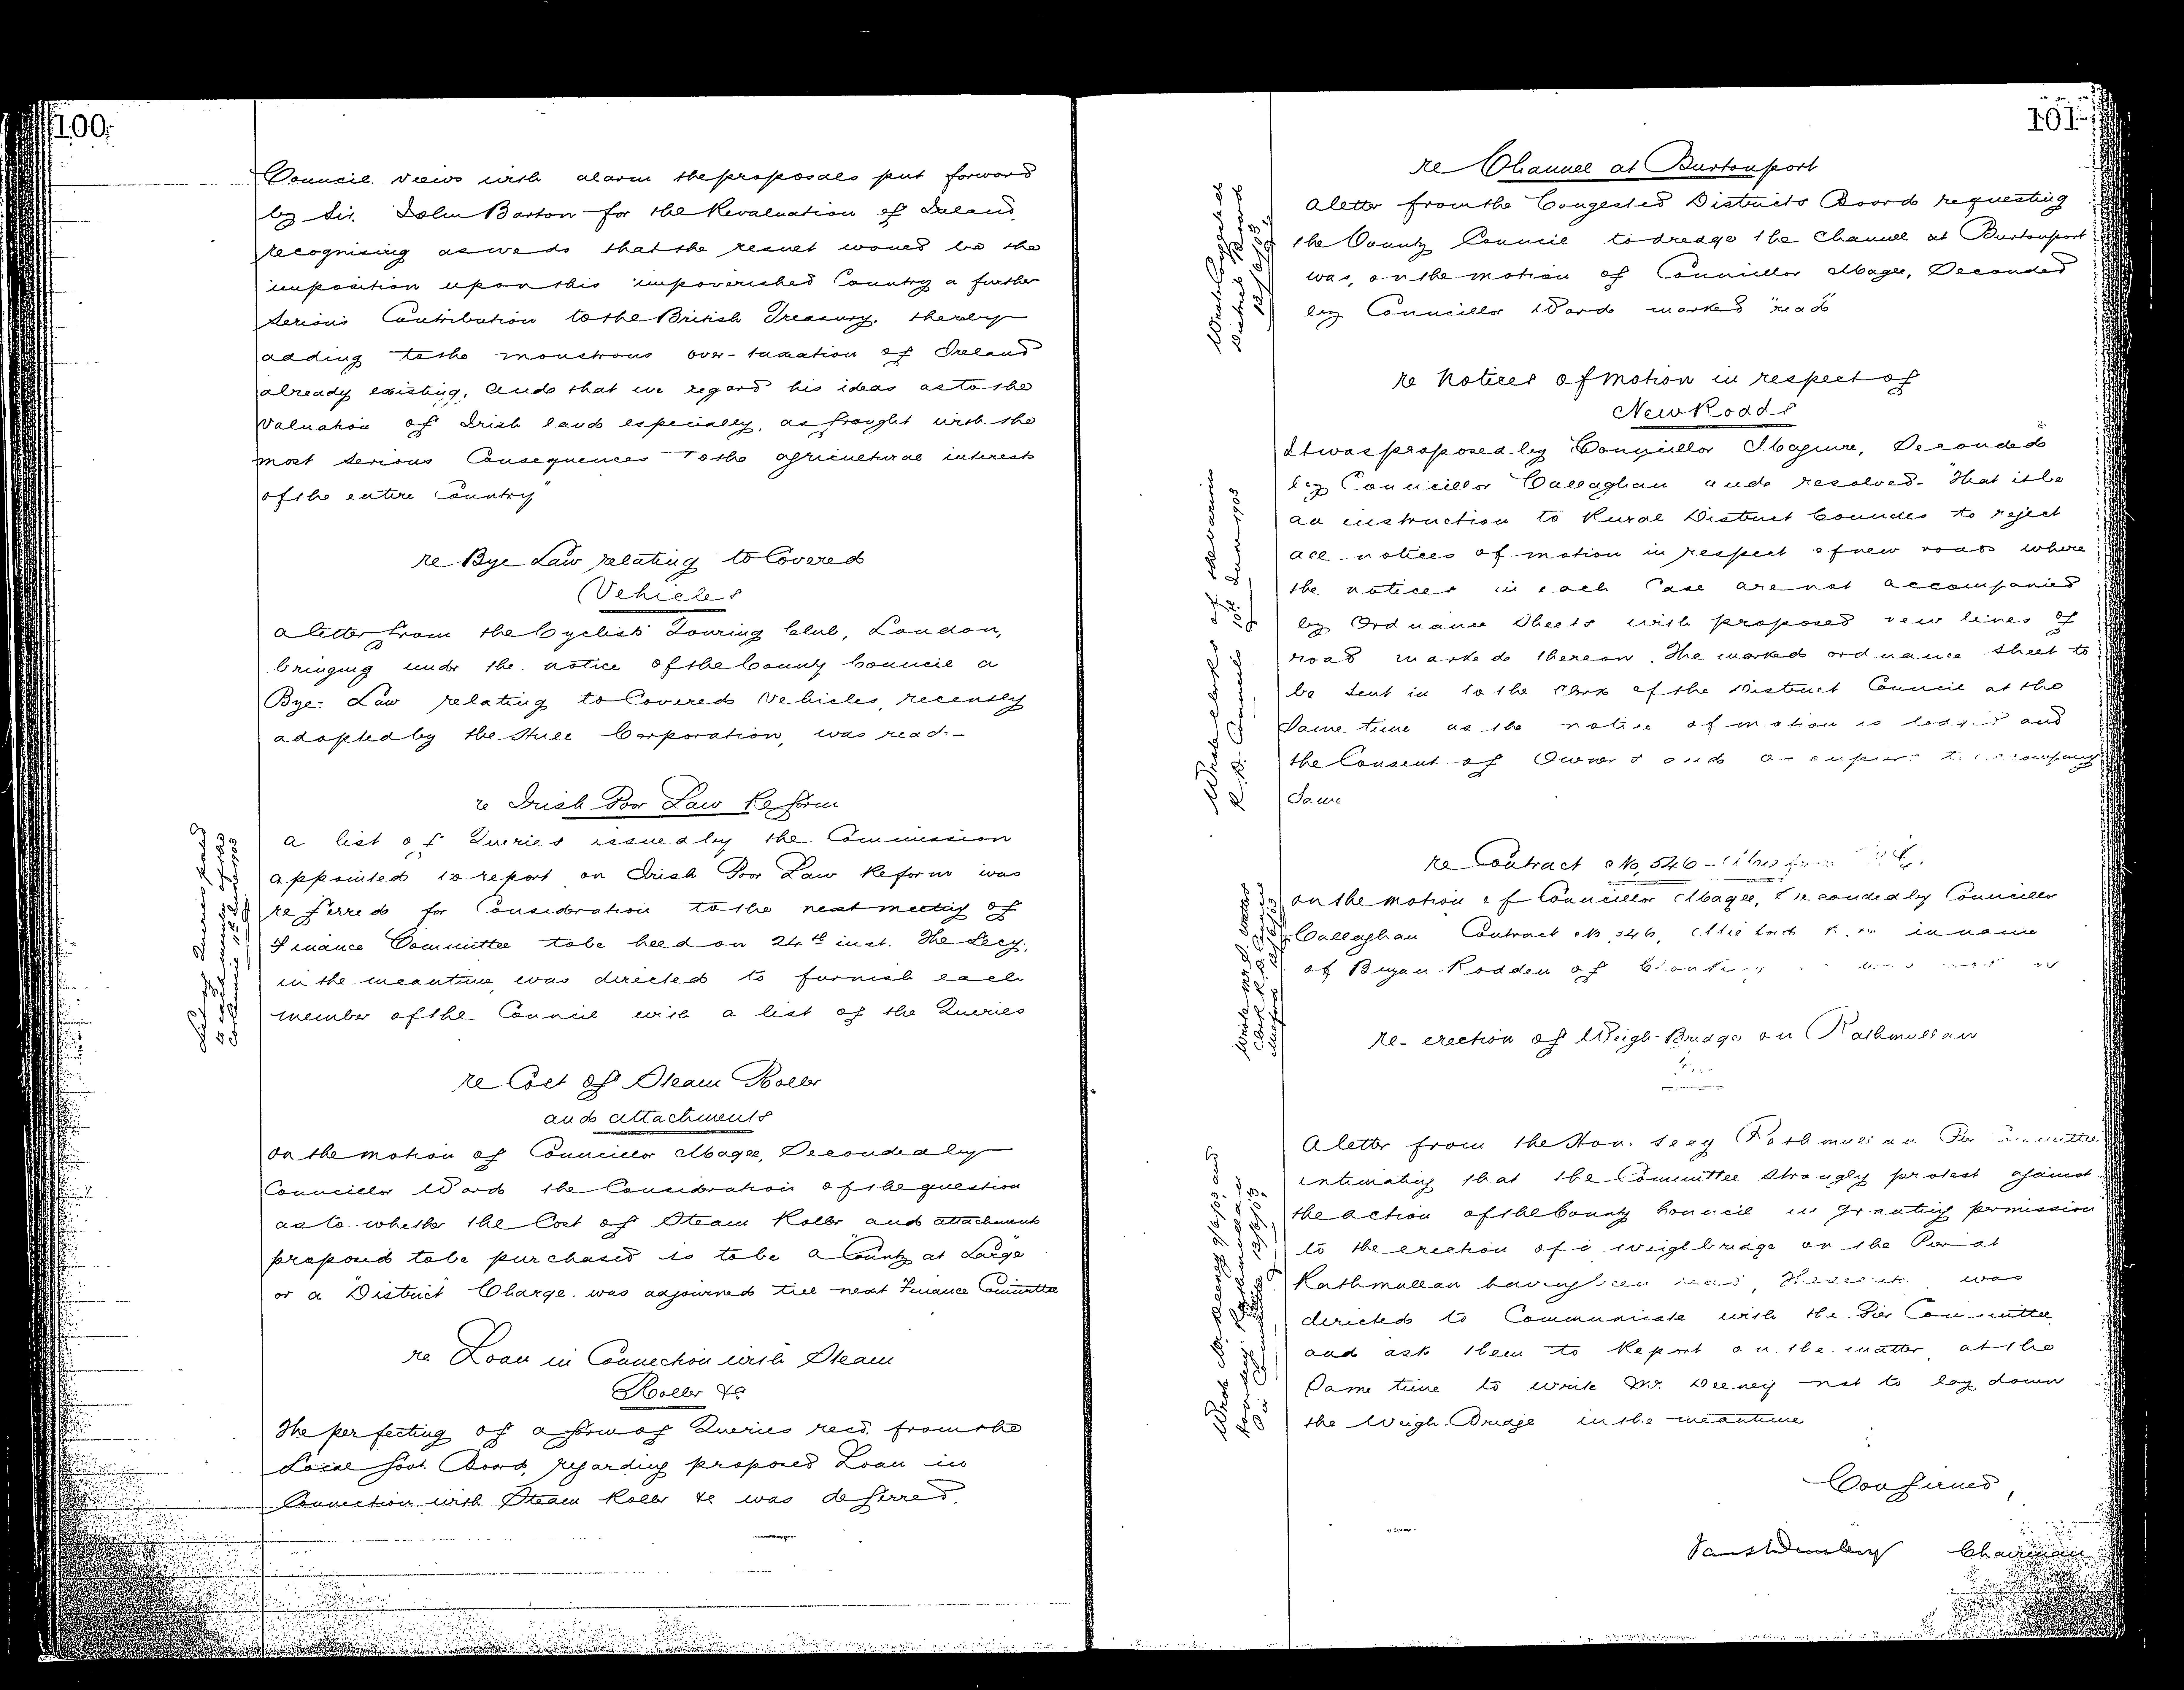 100
Council views with alarm the proposals put forward
by Sir. John Barton for the Revaluation of Ireland,
recognising as we do that the result would be the
imposition upon this impoverished Country a further
serious Contribution to the British Treasury, thereby
adding to the monstrous over-taxation of Ireland
already existing, and that we regard his ideas as to the
Valuation of Irish land especially, as fraught with the
most serious Consequences to the agricultural interests
of the entire Country"
re Bye Law relating to Covered
Vehicles
a letter from the Cyclists Touring Club, London,
bringing under the notice of the County Council a
Bye-Law relating to Covered Vehicles, recently
adopted by the Hull Corporation, was read.-
re Irish Poor Law Reform
List of Queries posted
to each member of the
Co Council 1903
a list of Queries issued by the Commission
appointed to report on Irish Poor Law Reform was
referred for Consideration to the next meeting of
Finance Committee to be held on 24th inst. The Secy.
in the meantime, was directed to furnish each
member of the Council with a list of the Queries
re Cost of Steam Roller
and attachments
On the motion of Councillor Magee, Seconded by
Councillor Ward the Consideration of the question
as to whether the Cost of Steam Roller and attachments
proposed to be purchased is to be a "County at Large"
or a "District" Charge. was adjourned till next Finance Committee
re Loan in Connection with Steam
Roller &c
The perfecting of a form of Queries recd. from the
Local Govt. Board, regarding proposed Loan in
Connection with Steam Roller &c was deferred.
101
re Channel at Burtonport
Wrote Congested
Districts Board
12/6/03
A letter from the Congested Districts Board requesting
the County Council to dredge the Channel at Burtonport
was, on the motion of Councillor Magee, Seconded
by Councillor Ward marked "read"
re Notices of Motion in respect of
New Roads
Wrote clerks of the various
R. D. Councils 10th June 1903
It was proposed by Councillor Maguire, Seconded
by Councillor Callaghan and resolved. "That it be
an instruction to Rural District Councils to reject
all notices of motion in respect of new roads where
the notices in each Case are not accompanied
by Ordnance Sheets with proposed new lines of
road marked thereon. The marked ordnance sheet to
be sent in to the Clerk of the District Council at the
Same time as the notice of motion is lodged and
the Consent of Owners and occupiers to accompany
Same
re Contract No, 546 - Milford
Clerk R. D. Council
Milford 12/6/03
On the motion of Councillor Magee, Seconded by Councillor
Callaghan Contract No 546, Milford in name
of Bryan Rodden of
re- erection of Weigh-Bridge on Rathmullan
Pier
Wrote Mr Deeney 9/6/03 and
Hon Secy. Rathmullan
Pier Committee 12/6/03
A letter from the Hon. Secy Rathmullan Pier Committee
intimating that the Committee strongly protest against
the action of the County Council in granting permission
to the erection of a weighbridge on the Pier at
Rathmullan having been read, was
directed to Communicate with the Pier Committee
and ask them to Report on the matter, at the
Same time to write Mr. Deeney not to lay down
the Weigh-Bridge in the meantime
Confirmed,
Chairman